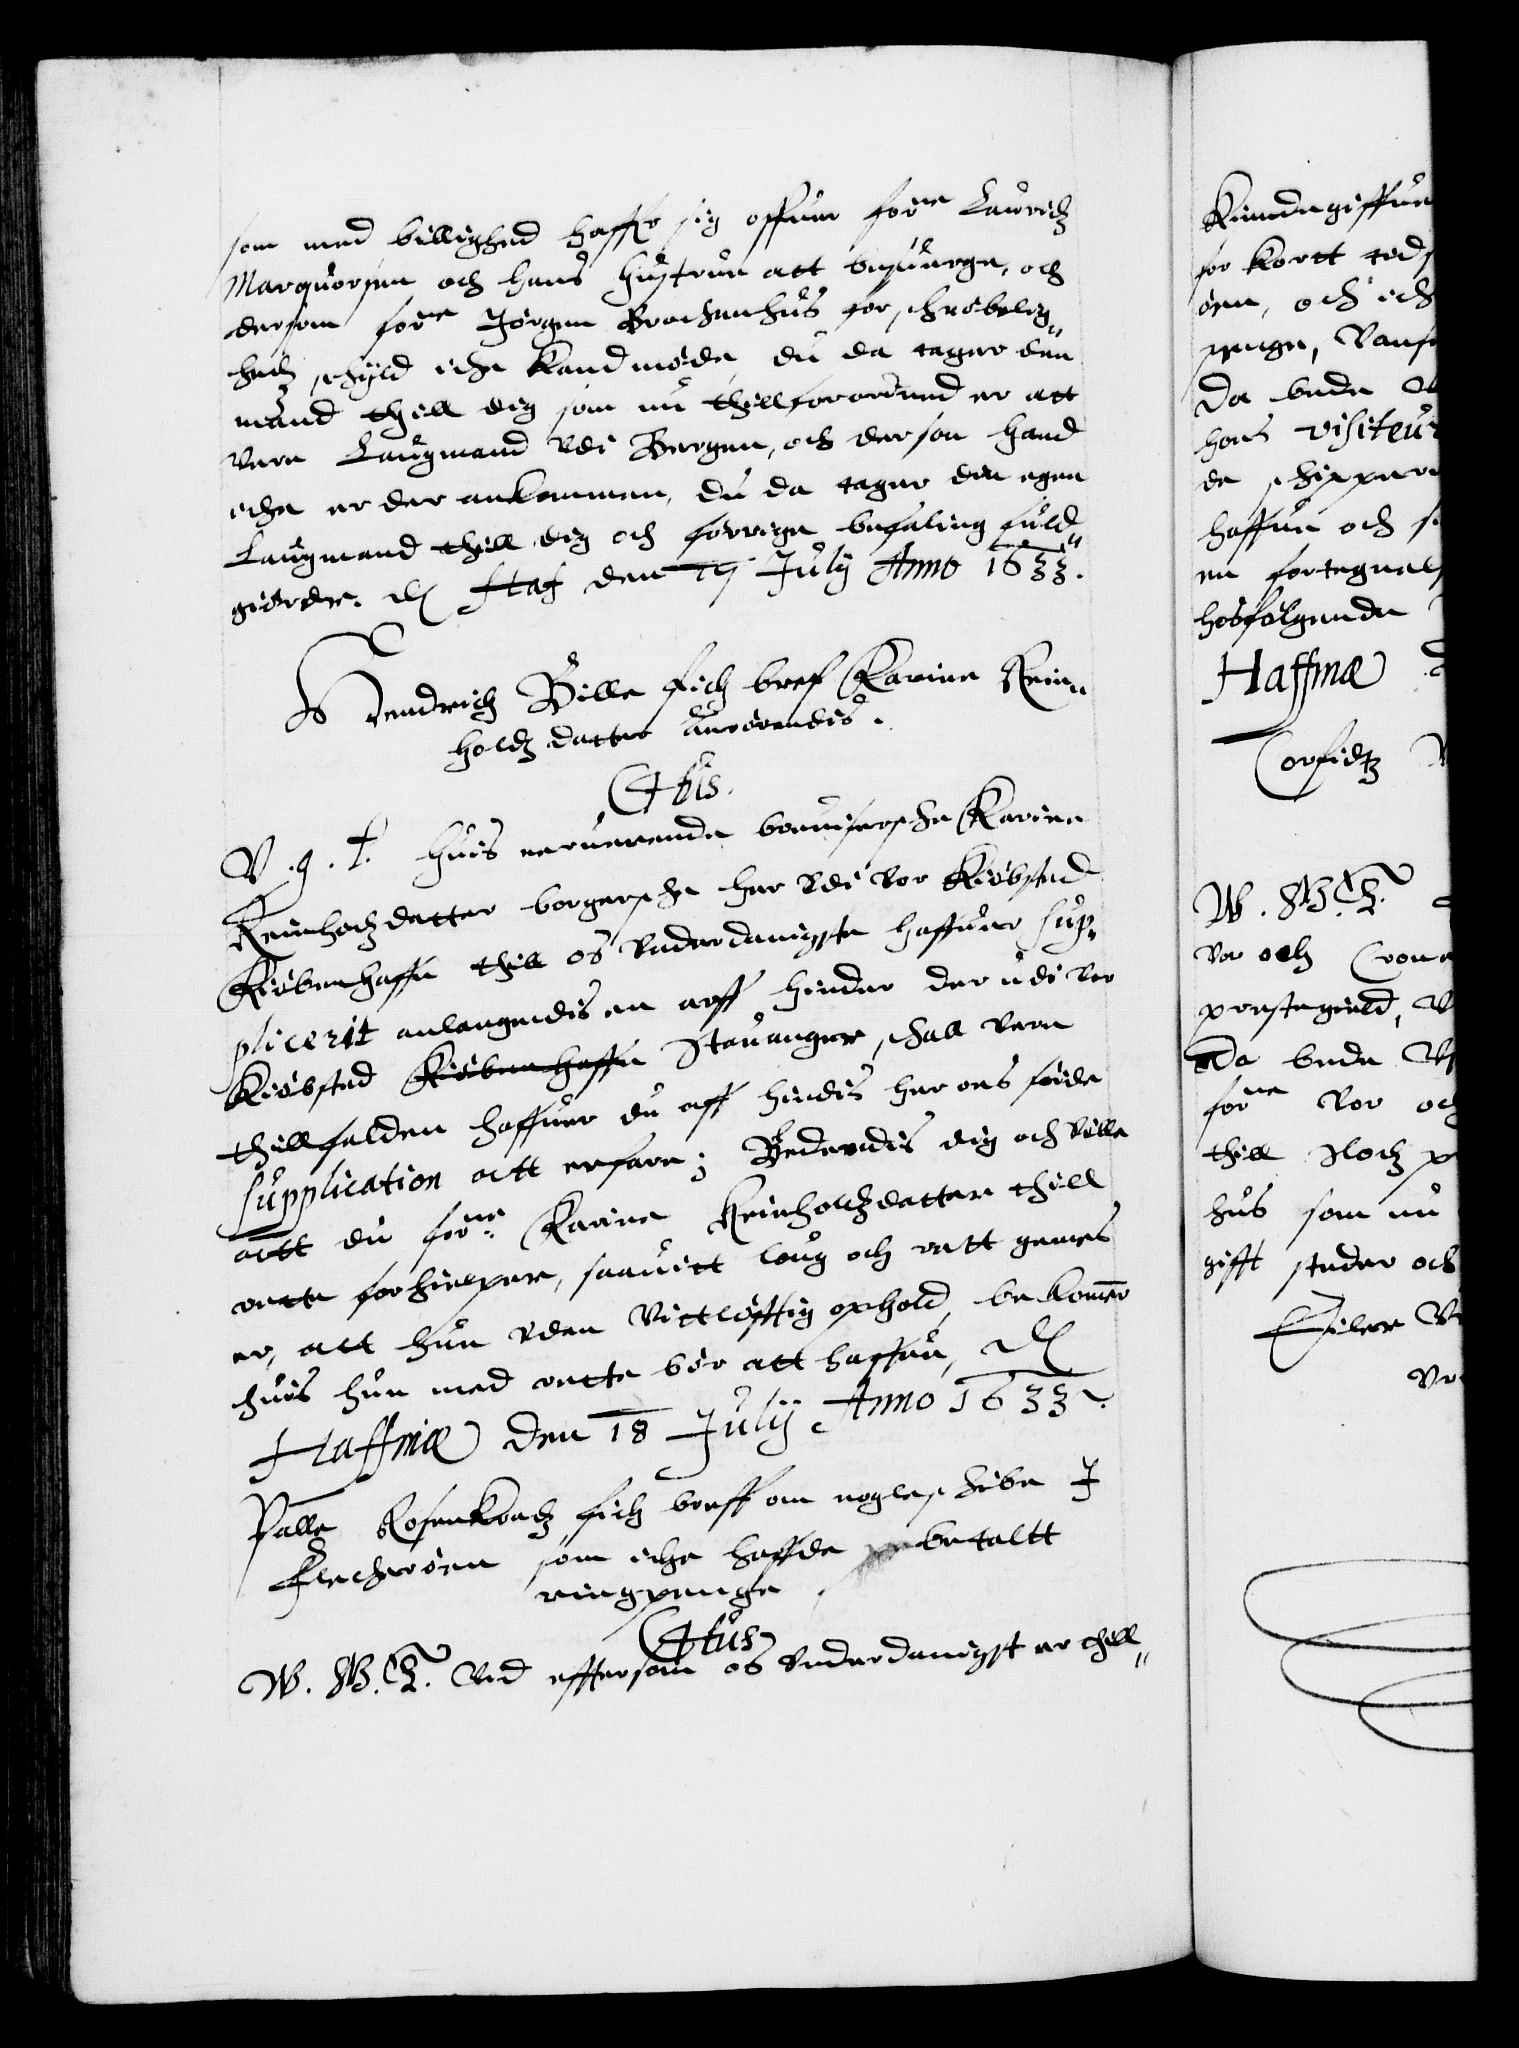 som med billighed haffr sig offuer forne Lauridz
Marquorsen och hans hustrue att besuerge, och
dersom forne Jörgen Brochenhus for schröbelig„
hedz schyld iche kand möde, du da tager den
mand thill dig som nu thillforordned er att
vere Laugmand udi Bergen, och dersom hand
iche er der ankommen, du da tager din egen
Laugmand thill dig och forrige befaling fuld„
giörder. Haf den 19 July Anno 1633.
Hendrich Bille fich bref Karine Rein„
holdz datter anrörendis.
C4tus.
V. g. t. huis nerverende breuiserske Karine
Reinholdzdatter borgerske her udi vor Kiöbsted
Kiöbenhaffn thill os underdanigste haffuer sup„
plicerit anlangendis en arff hinder der udi vor
Kiöbsted Kiöbenhaffn Stauanger, schall vere
thillfalden haffuer du aff hindis her ons föiede
supplication att erfare; Bedendis dig och ville
att du forne. Karine Reinholdzdatter thill
rette forhielper, saauitt loug och rett gemes
er, att hun uden vittlöfftig ophold, bekommer
huis hun med rette bör att haffue,
Haffniæ den 18 July Anno 1633.
Palle Rosenkrandz fich breff om nogle schibe J
Flecheröen som iche haffde betaltt
ringpenge
C4tus
W. G. T. Vid effterson os underdanigst er thill„
Kiendegiffue
for kortt tid
öen, och ich
penge,
Da bede
hans visiteur
de schipper
haffue och
en fortegnels
hosfölgende
Haffniæ
Corfidz
W. G. T.
vor och Crone
prestegield,
Da bede
forne vor och
thill
hus som nu
gifft steder och
Eiler